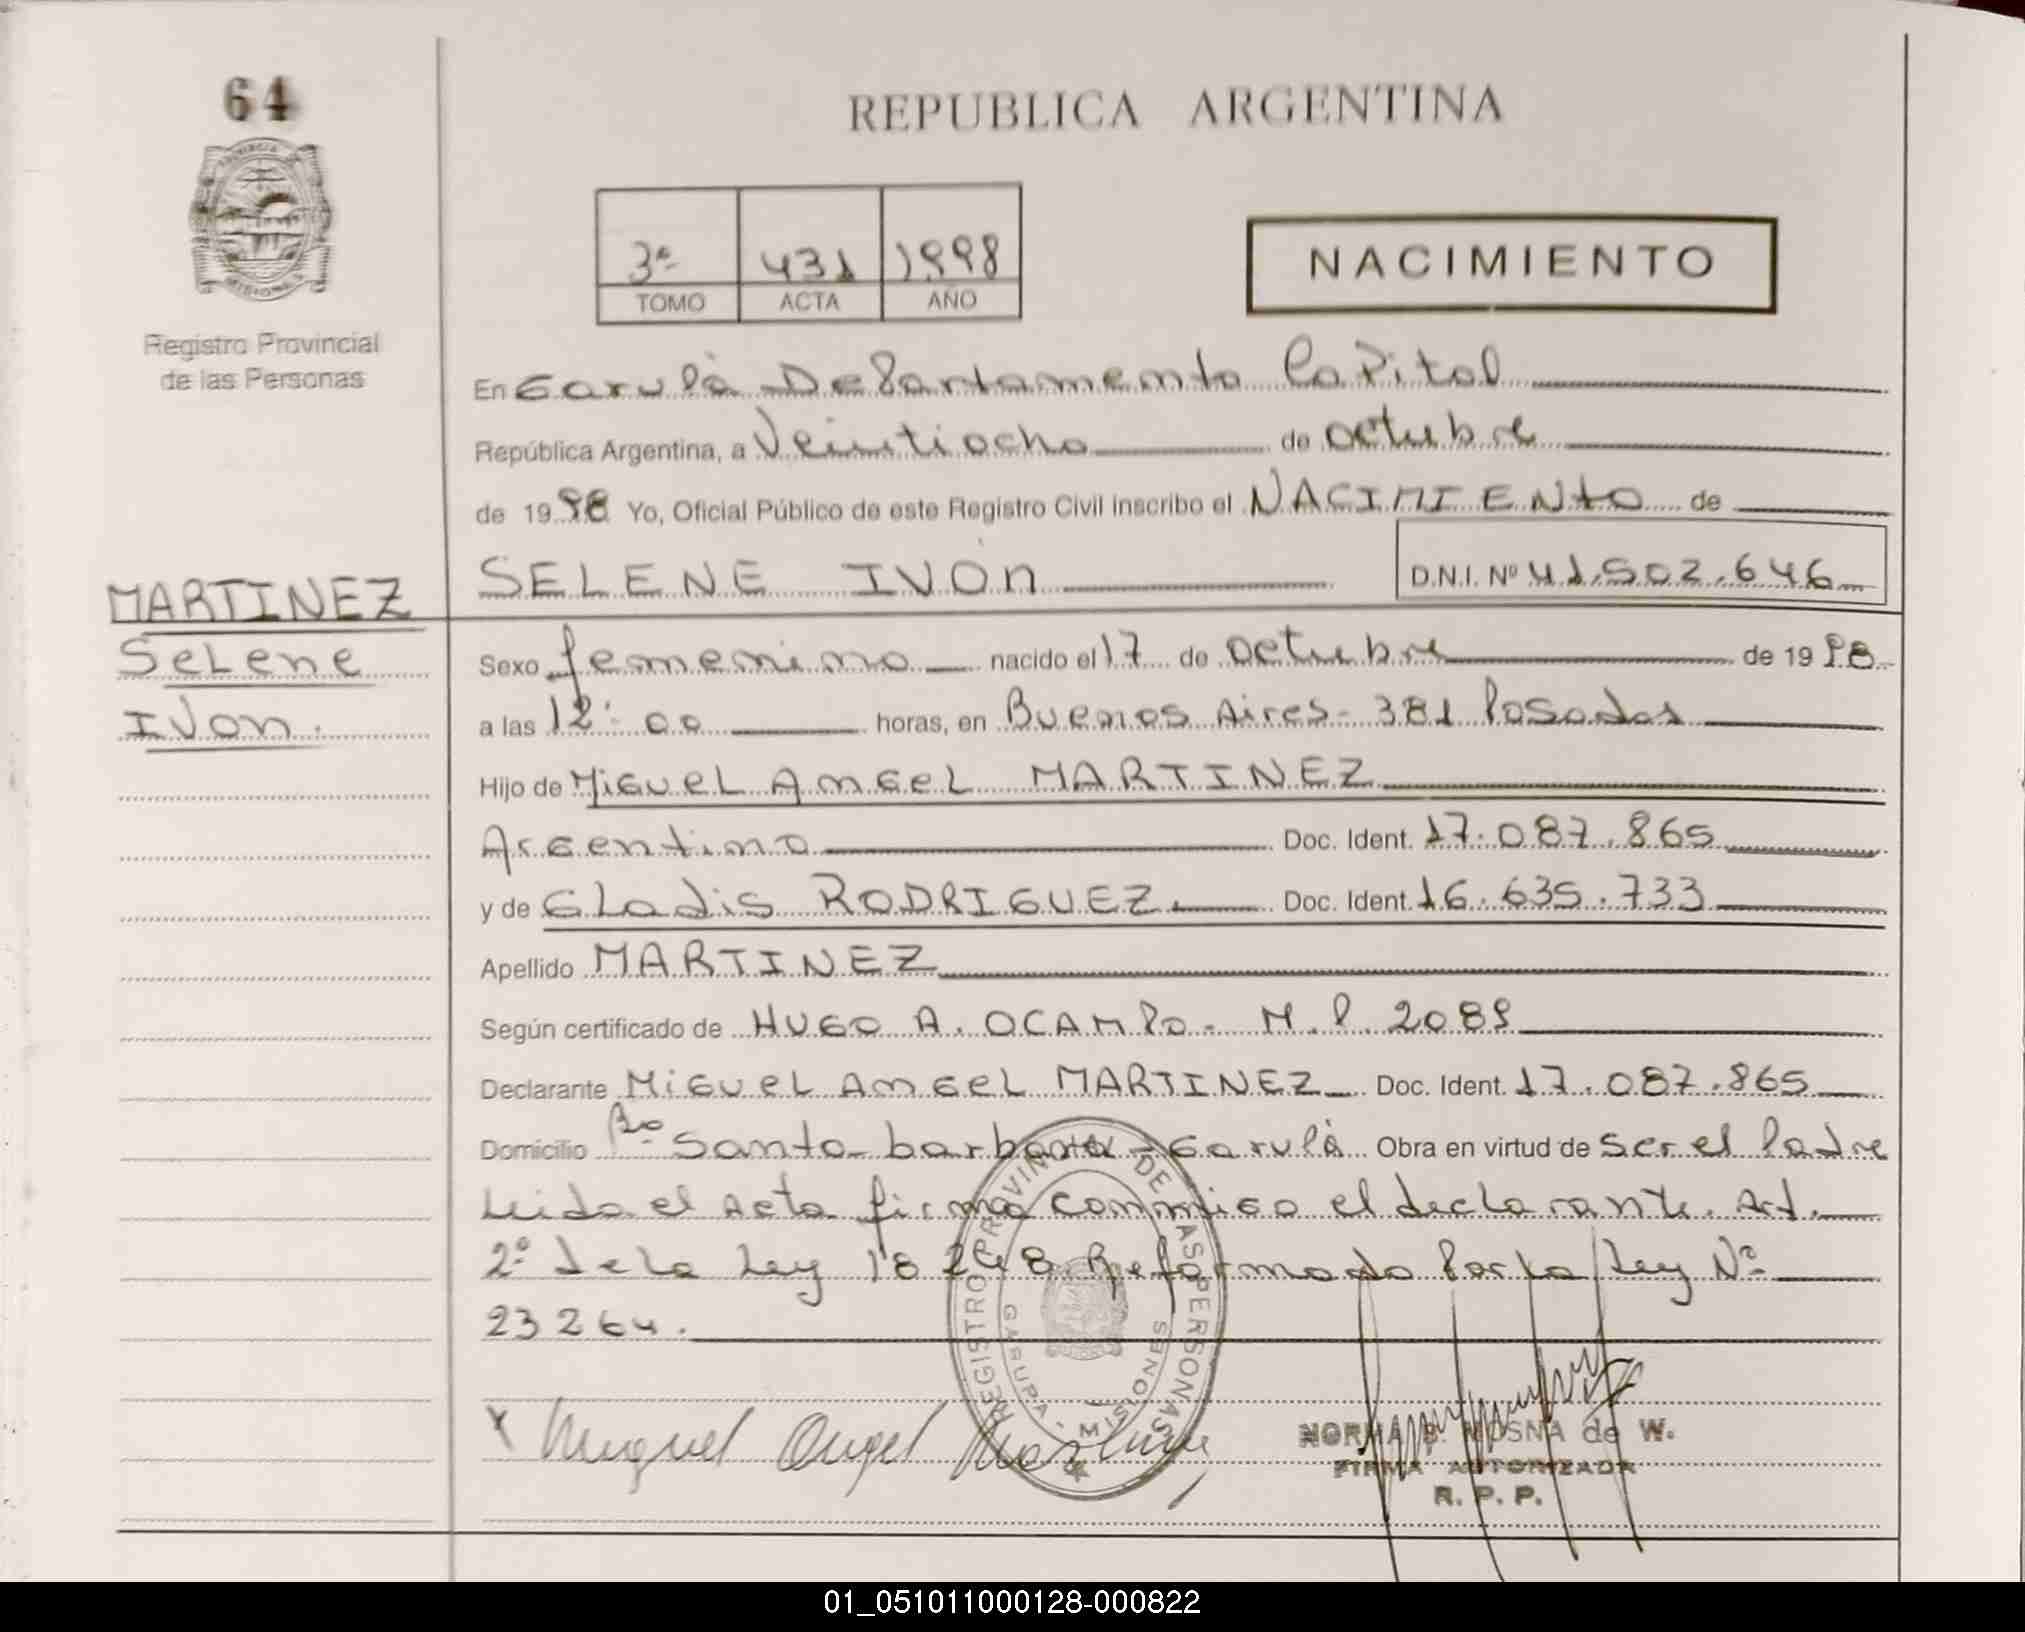 64
REPUBLICA ARGENTINA
3º 431 1998
TOMO ACTA AÑO
NACIMIENTO
PROVINCIA DE
MISIONES
Registro Provincial
de las Personas
En Garupá Departamento Capital
República Argentina, a Veintiocho de octubre
de 1998 Yo, Oficial Público de este Registro Civil inscribo el NACIMIENTO de
SELENE IVON D.N.I. Nº 41.502.646
MARTINEZ
Selene
Ivon.
Sexo femenino nacido el 17 de octubre de 1998
a las 12:00 horas, en Buenos Aires - 381 Posadas
Hijo de Miguel Angel MARTINEZ
Argentino Doc. Ident. 17.087.865
y de Gladis RODRIGUEZ. Doc. Ident. 16.635.733
Apellido MARTINEZ
Según certificado de HUGO A. OCAMPO - M.P. 2089
Declarante Miguel Angel MARTINEZ Doc. Ident. 17.087.865
Domicilio Bº Santa barbara - Garupá Obra en virtud de ser el Padre
Leida el Acta firma conmigo el declarante. Art.
2º de la Ley 18248 Reformado Por La Ley Nº
23264.
REGISTRO PROVINCIAL DE LAS PERSONAS
GARUPA - MISIONES
x Miguel Angel Martinez
NORMA B. NOSNA de W.
FIRMA AUTORIZADA
R. P. P.
01_051011000128-000822